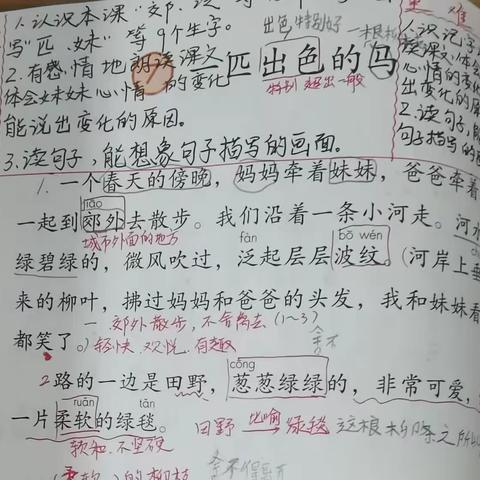 1.认识本课"郊、
写"匹、妹"等9个生字。
2.有感情地朗读课文
体会妹妹心情的变化
能说出变化的原因。
3.读句子,能想象句子描写的画面。
出色 特别好 一根
一匹出色的马
特别 超出一般
重 难
1.认识字
读课文,体会
心情的变化
出变化的原
2.读句子,能
句子描写的
1.一个春天的傍晚,妈妈牵着妹妹,爸爸牵着
jiāo
一起到郊外去散步。我们沿着一条小河走。河水
城市外面的地方 fàn bō wén
绿碧绿的,微风吹过,泛起层层波纹。(河岸上垂
来的柳叶,拂过妈妈和爸爸的头发,我和妹妹看
一、郊外散步,不舍离去(1~3)
都笑了。) 轻快、欢悦、有趣 舍不
cōng
2路的一边是田野,葱葱绿绿的,非常可爱,
ruǎn tǎn
一片柔软的绿毯。 田野 比喻 绿毯 这根柳条之所以
软和、不坚硬
(柔软)的柳枝 舍不得离开